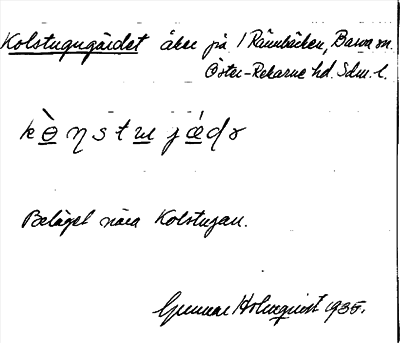 Kolstugugärdet åker på 1 Rännbäcken, Barva sn.
Öster-Rekarne hd. Sdm. l.
Beläget nära Kolstugan.
Gunnar Holmquist 1935.